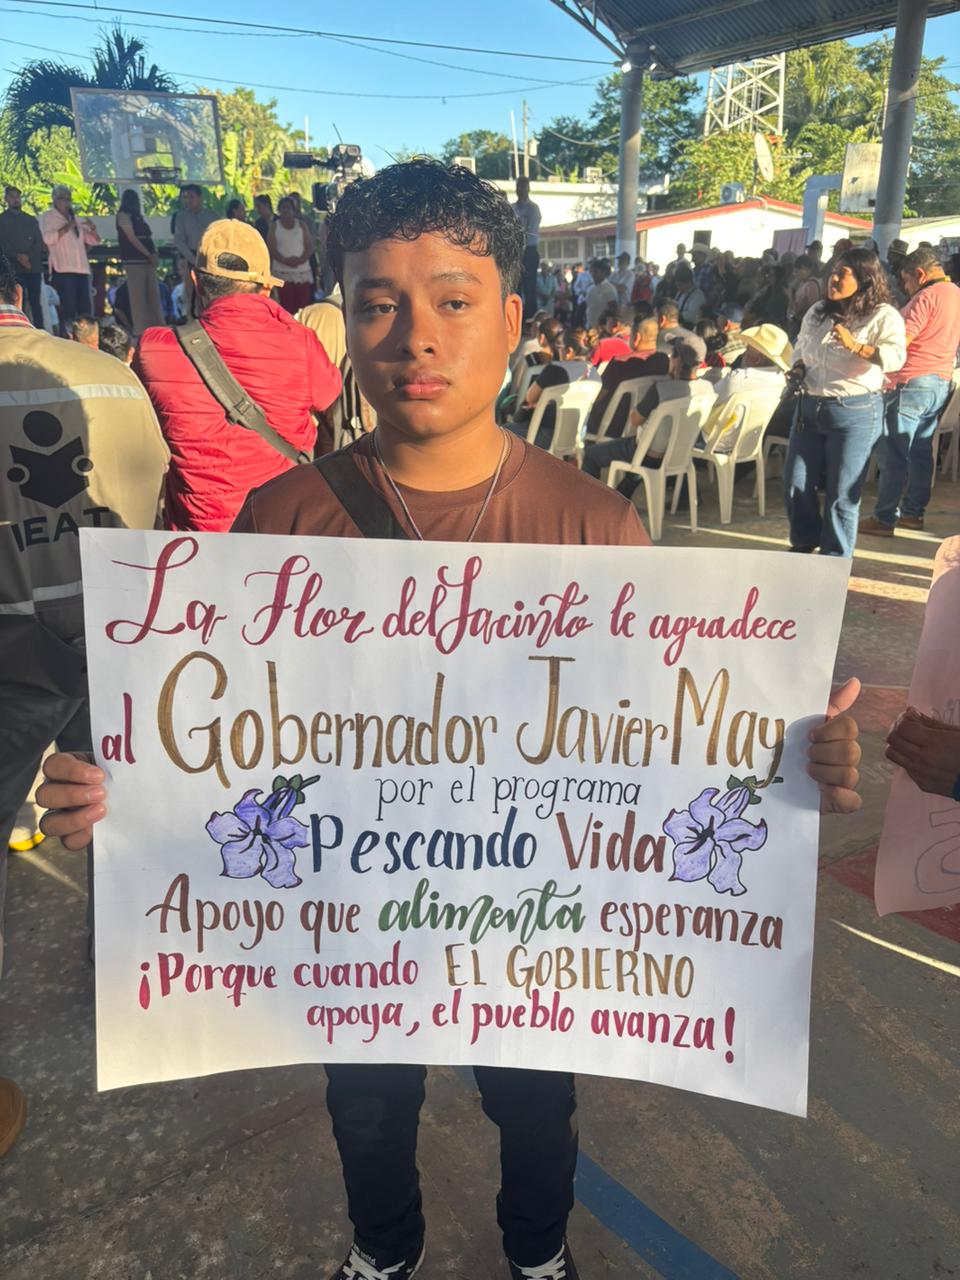 La Flor del Jacinto le agradece
al Gobernador Javier May
por el programa
Pescando Vida
Apoyo que alimenta esperanza
¡Porque cuando EL GOBIERNO
apoya, el pueblo avanza!
IEAT